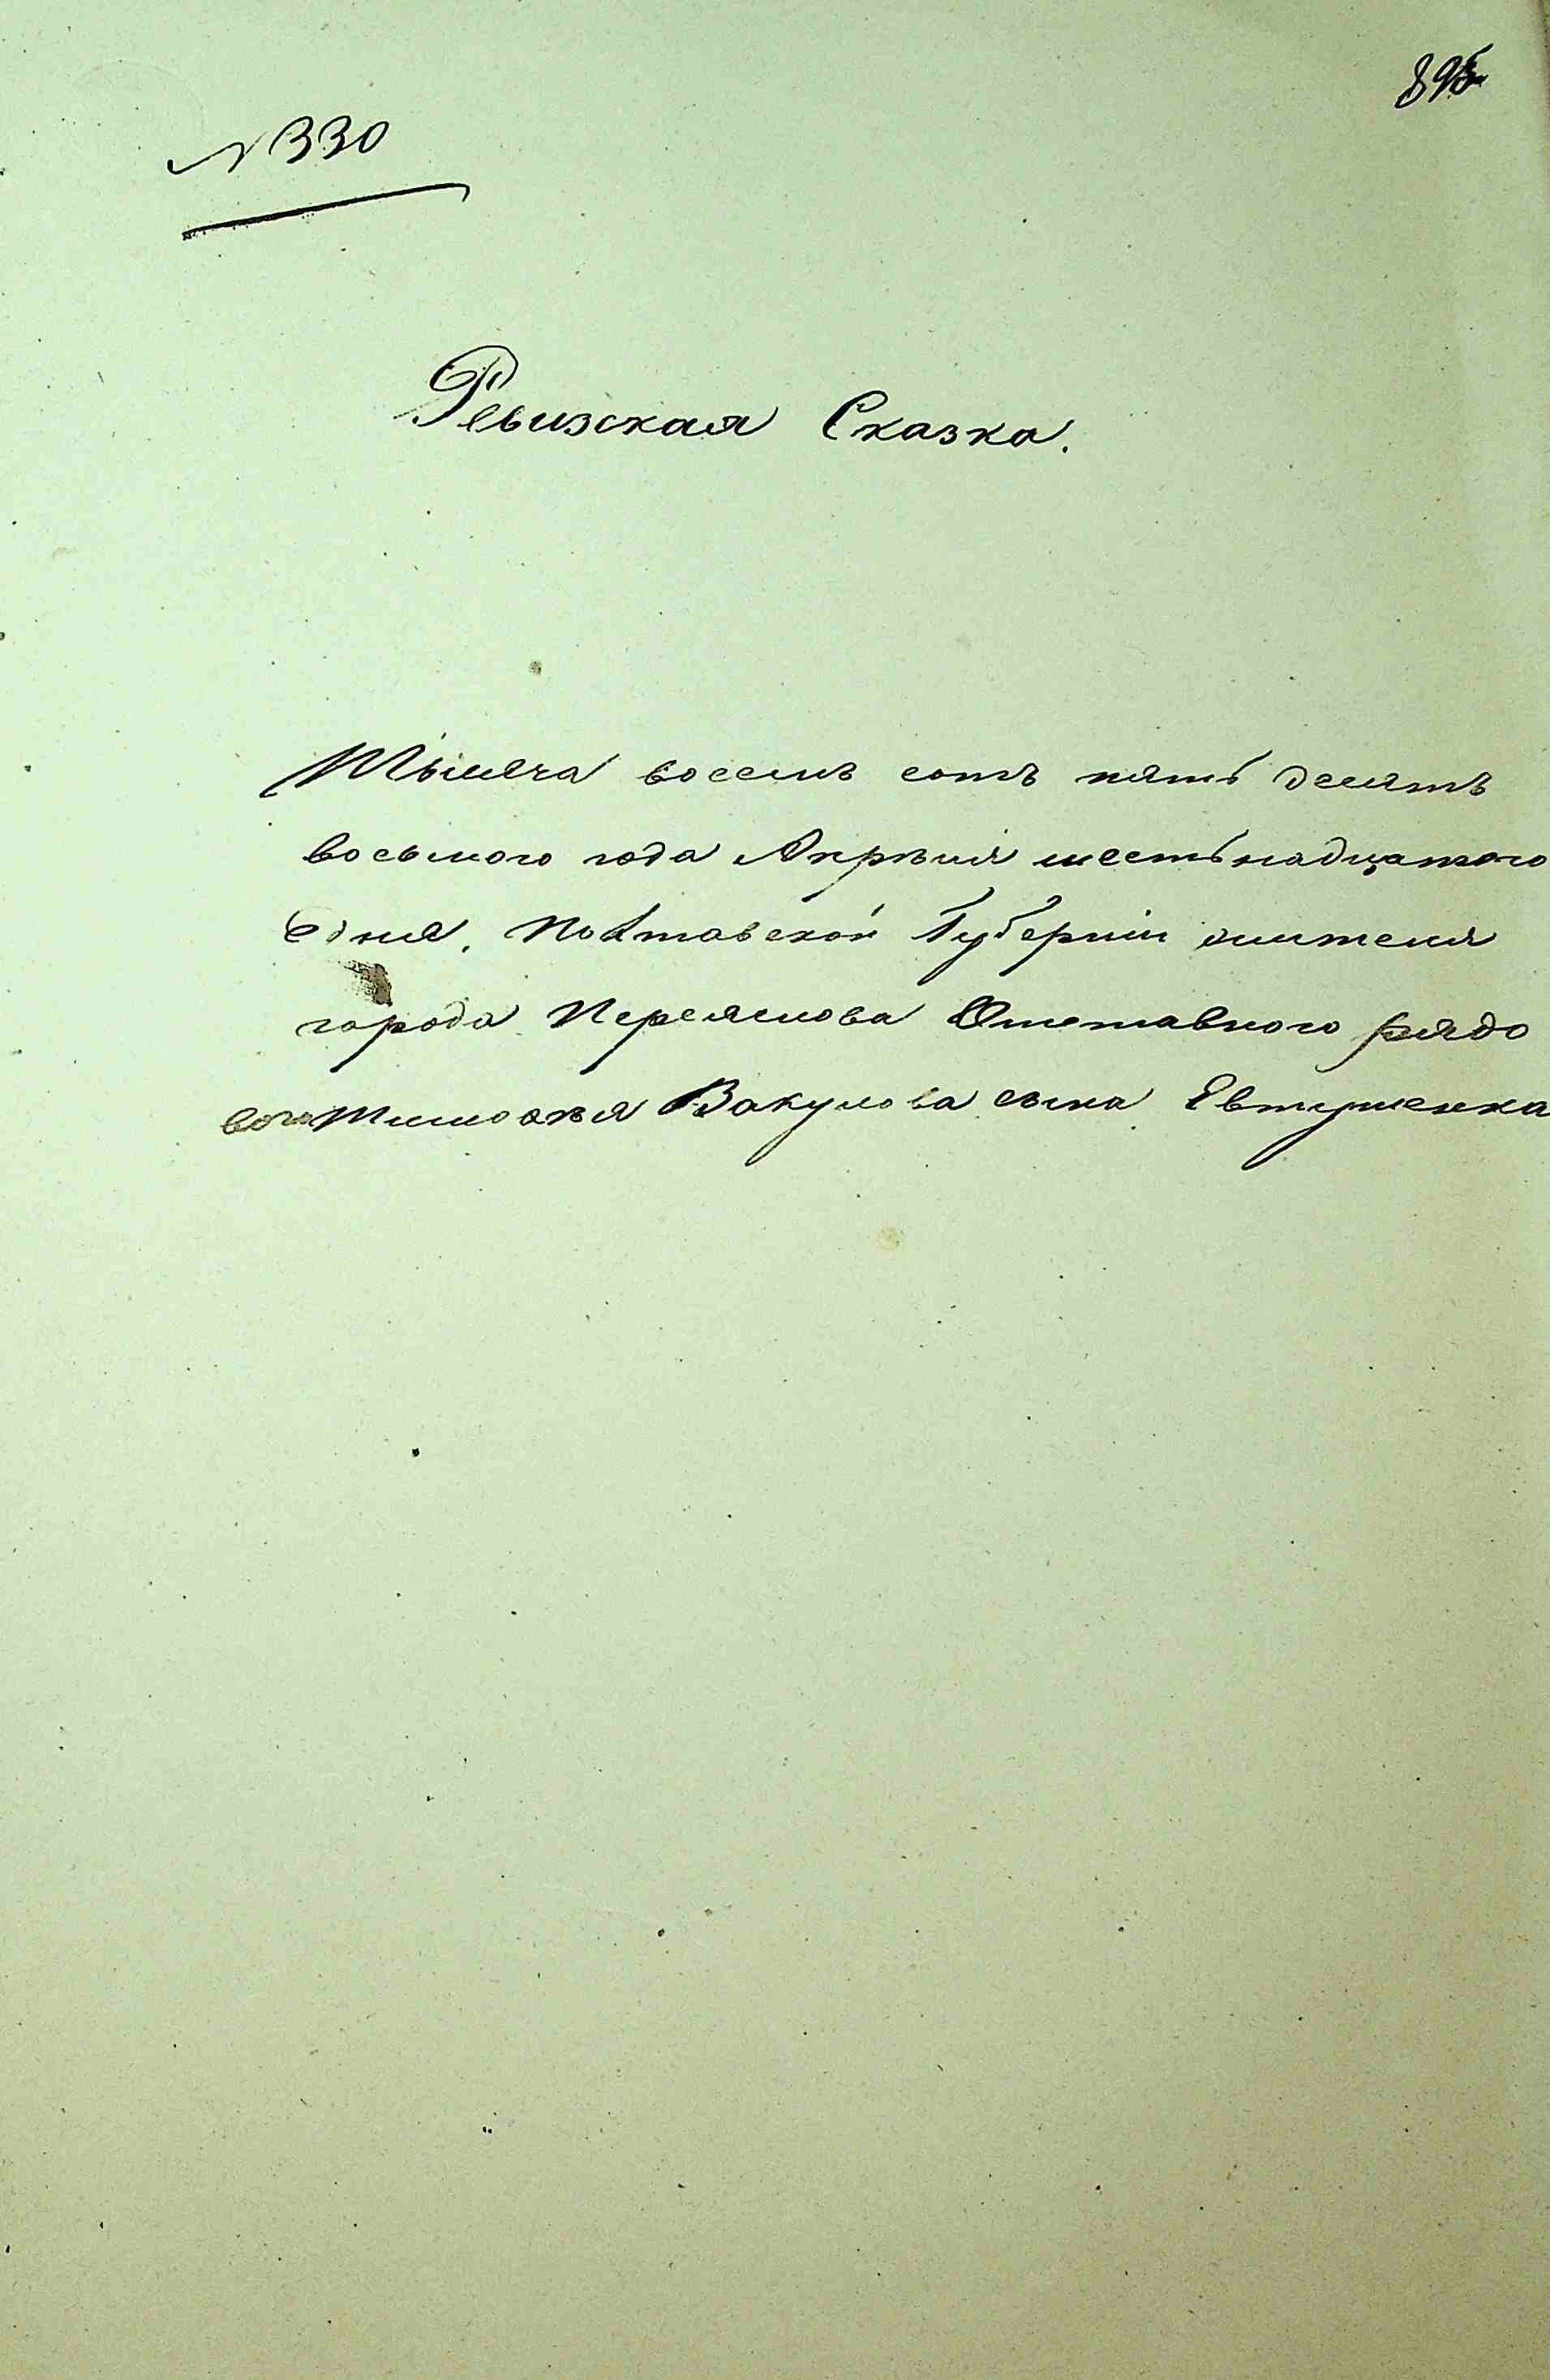 895
№ 330
Ревизская Сказка.
Тысеча восемъ сотъ пять десятъ
восьмого года Апрѣля шестьнадцатого
дня. Полтавской Губерніи жителя
города Переяслова Отставного рядо
вого Тимофѣя Вакулова сына Евтушенка